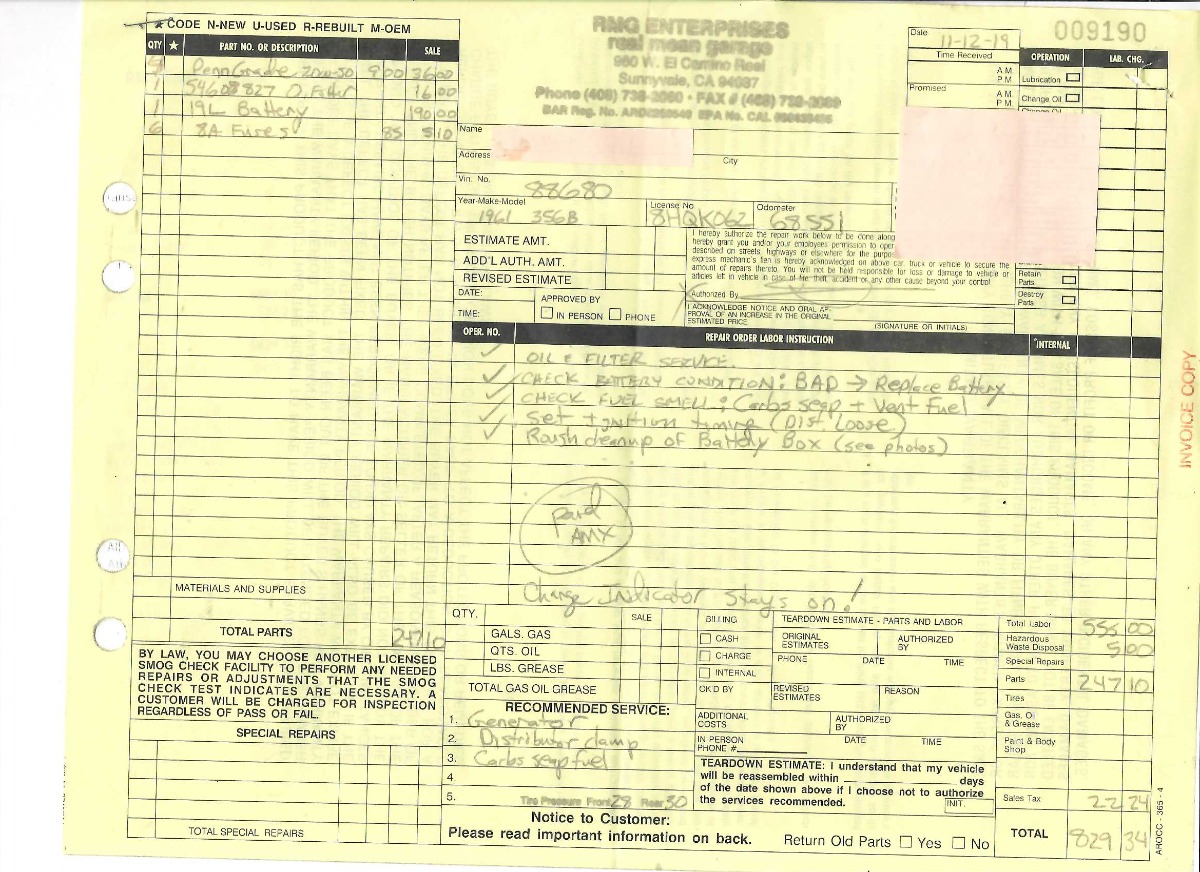 ★ CODE N-NEW U-USED R-REBUILT M-OEM
QTY ★ PART NO. OR DESCRIPTION SALE
PennGrade 20W-50 9 00 36 00
1 54608827 O. Filter 16 00
1 19L Battery 190 00
6 8A Fuses 85 5 10
MATERIALS AND SUPPLIES
TOTAL PARTS 247 10
BY LAW, YOU MAY CHOOSE ANOTHER LICENSED
SMOG CHECK FACILITY TO PERFORM ANY NEEDED
REPAIRS OR ADJUSTMENTS THAT THE SMOG
CHECK TEST INDICATES ARE NECESSARY. A
CUSTOMER WILL BE CHARGED FOR INSPECTION
REGARDLESS OF PASS OR FAIL.
SPECIAL REPAIRS
TOTAL SPECIAL REPAIRS
RMG ENTERPRISES
real mean garage
960 W. El Camino Real
Sunnyvale, CA 94087
Phone (408) 738-2060 • FAX # (408) 738-2089
BAR Reg. No.
EPA No. CAL
Date 11-12-19
009190
Time Received
A.M.
P.M.
Promised
A.M.
P.M.
OPERATION LAB. CHG.
Lubrication
Change Oil
Change Oil
Retain
Parts
Destroy
Parts
Name
Address
City
Vin. No. 88680
Year-Make-Model 1961 356B
License No. 8HQK062
Odometer 68551
ESTIMATE AMT.
ADD'L AUTH. AMT.
REVISED ESTIMATE
DATE:
TIME:
APPROVED BY
IN PERSON PHONE
I hereby authorize the repair work below to be done along
hereby grant you and/or your employees permission to oper
described on streets, highways or elsewhere for the purpos
express mechanic's lien is hereby acknowledged on above car, truck or vehicle to secure the
amount of repairs thereto. You will not be held responsible for loss or damage to vehicle or
articles left in vehicle in case of fire, theft, accident or any other cause beyond your control.
X Authorized By
I ACKNOWLEDGE NOTICE AND ORAL AP-
PROVAL OF AN INCREASE IN THE ORIGINAL
ESTIMATED PRICE.
(SIGNATURE OR INITIALS)
OPER. NO. REPAIR ORDER LABOR INSTRUCTION *INTERNAL
✓ OIL & FILTER SERVICE.
✓ CHECK BATTERY CONDITION: BAD → Replace Battery
✓ CHECK FUEL SMELL: Carbs seap + Vent Fuel
✓ Set Ignition timing (Dist. Loose)
✓ Rough cleanup of Battery Box (see photos)
Paid
AMX
Charge Indicator stays on!
QTY. SALE
GALS. GAS
QTS. OIL
LBS. GREASE
TOTAL GAS OIL GREASE
RECOMMENDED SERVICE:
1. Generator
2. Distributor clamp
3. Carbs seap fuel
4
5. Tire Pressure Front 28 Rear 30
Notice to Customer:
Please read important information on back.
BILLING
CASH
CHARGE
INTERNAL
OK'D BY
TEARDOWN ESTIMATE - PARTS AND LABOR
ORIGINAL
ESTIMATES
AUTHORIZED
BY
PHONE DATE TIME
REVISED
ESTIMATES
REASON
ADDITIONAL
COSTS
AUTHORIZED
BY
IN PERSON
PHONE #
DATE TIME
TEARDOWN ESTIMATE: I understand that my vehicle
will be reassembled within days
of the date shown above if I choose not to authorize
the services recommended.
INIT.
Return Old Parts Yes No
Total Labor 555 00
Hazardous
Waste Disposal 5 00
Special Repairs
Parts 247 10
Tires
Gas, Oil
& Grease
Paint & Body
Shop
Sales Tax 22 24
TOTAL 829 34
INVOICE COPY
AROCC - 365 - 4